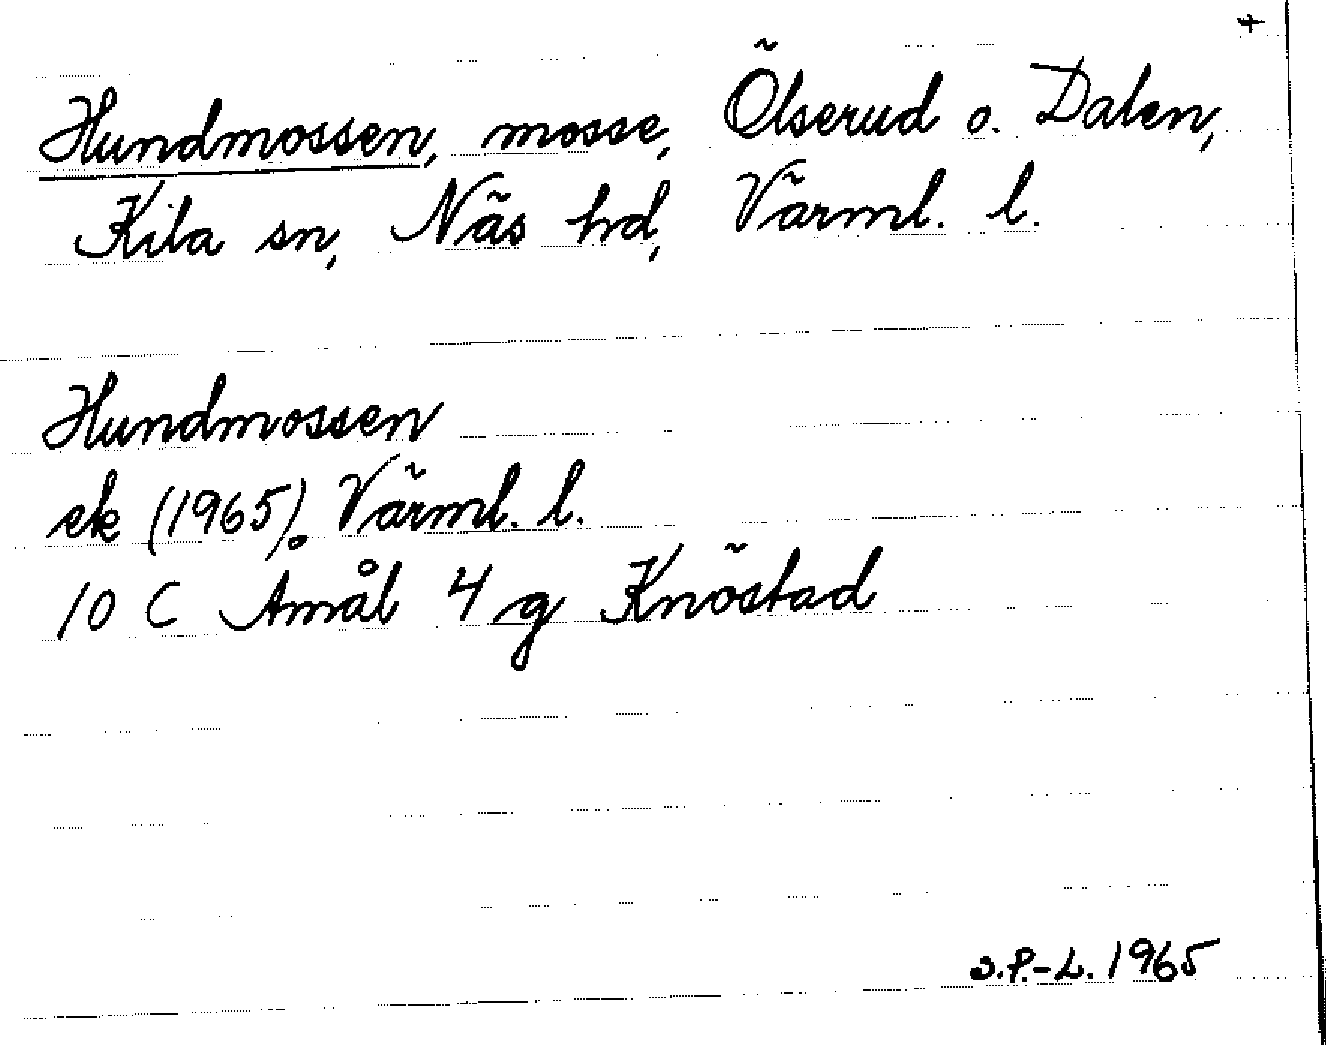 +
Hundmossen, mosse, Ölserud o. Dalen,
Kila sn, Näs hd, Värml. l.
Hundmossen
ek (1965). Värml. l.
10 C Åmål 4 g Knöstad
S.P.-L. 1965